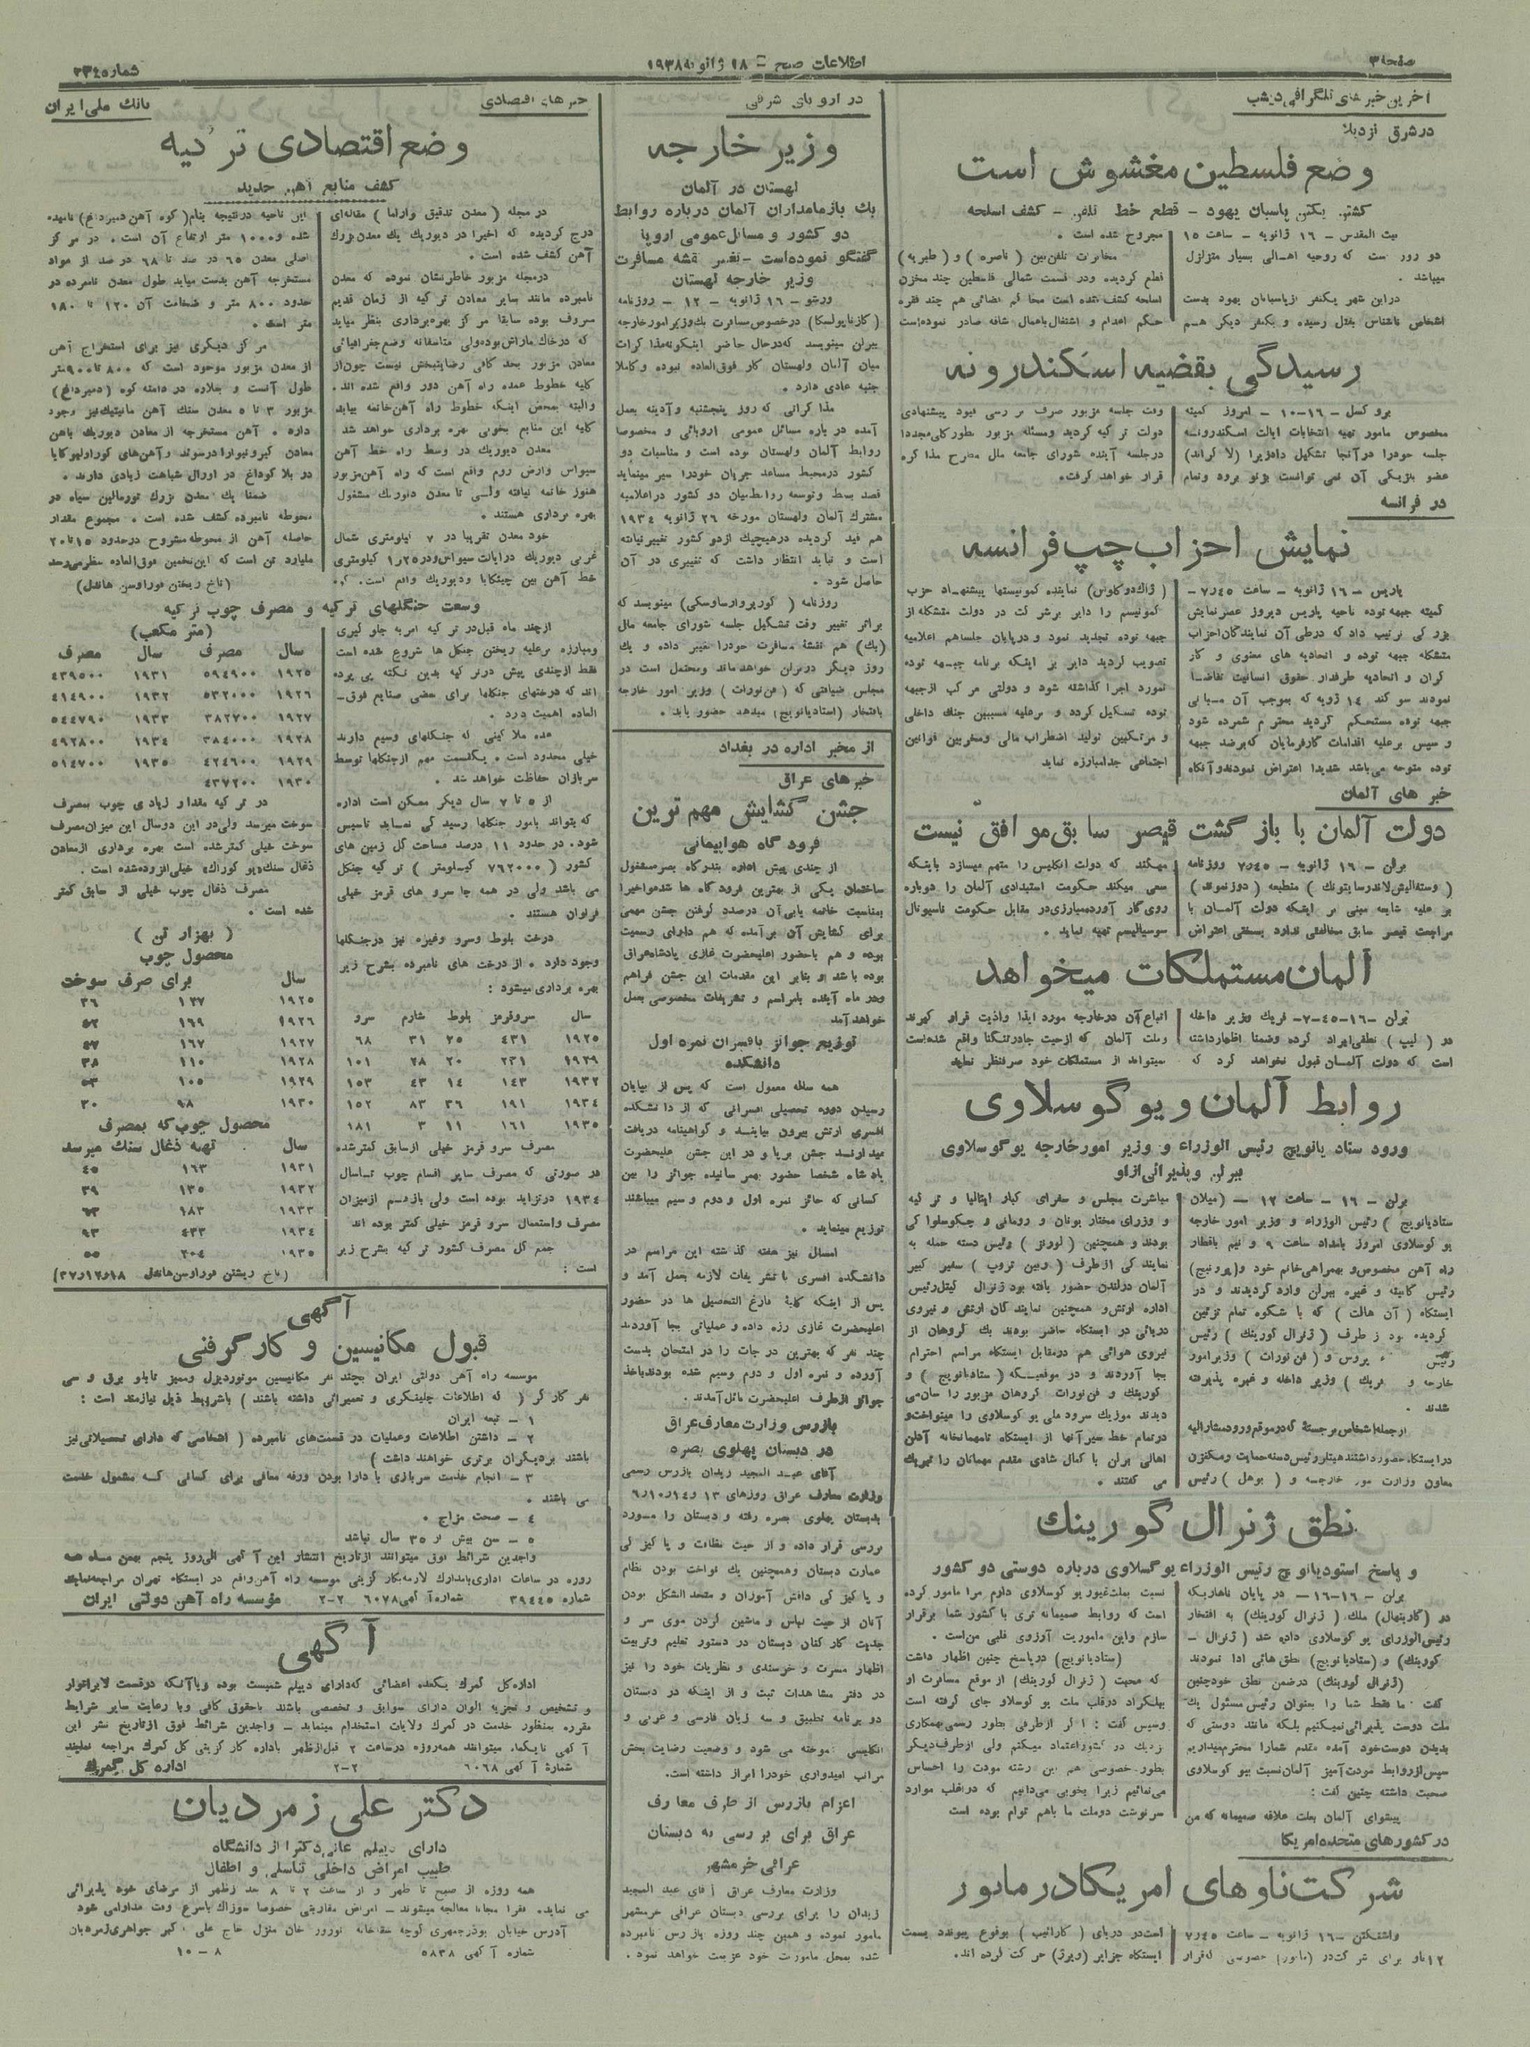 صفحه ۳
اطلاعات صبح – ۱۸ ژانویه ۱۹۳۸
آخرین خبرهای تلگرافی دیشب
در شرق نزدیك
وضع فلسطین مغشوش است
کشته یکتن پاسبان یهود – قطع خط تلفن – کشف اسلحه
بیت المقدس – ۱۶ ژانویه – ساعت ۱۵
دو روز است که روحیه اهالی بسیار متزلزل
میباشد .
در این شهر یکنفر از پاسبانان یهود بدست
اشخاص ناشناس بقتل رسیده و یکنفر دیگر هم
مجروح شده است .
مخابرات تلفن بین ( ناصره ) و ( طبریه )
قطع گردیده و در قسمت شمالی فلسطین چند مخزن
اسلحه کشف شده است
رسیدگی بقضیه اسکندرونه
بروکسل – ۱۶-۱۰ – امروز کمیته
مخصوص مامور تهیه انتخابات ایالت اسکندرونه
جلسه خود را در آنجا تشکیل داد زیرا (لاگراند)
عضو بلژیکی آن نمی توانست بژنو برود و تمام
وقت جلسه مزبور صرف بررسی قیود پیشنهادی
دولت ترکیه گردید و مسئله مزبور بطور کلی مجددا
در جلسه آینده شورای جامعه ملل مطرح مذاکره
قرار خواهد گرفت.
در فرانسه
نمایش احزاب چپ فرانسه
پاریس – ۱۶ ژانویه – ساعت ۷٫۴۵ –
کمیته جبهه توده ناحیه پاریس دیروز عصر نمایش
بزرگی ترتیب داد که در طی آن نمایندگان احزاب
متشکله جبهه توده و اتحادیه های معنوی و کار
گران و اتحادیه طرفدار حقوق انسانیت تقاضا
جبهه توده مستحکم گردید محترم شمرده شود
و سپس برعلیه اقدامات کارفرمایان که بر ضد جبهه
توده متوجه می‌باشد شدیدا اعتراض نمودند و آنگاه
(ژاك دوکلوس) نماینده کمونیستها پیشنهاد حزب
کمونیسم را دایر بر شرکت در دولت متشکله از
جبهه توده تجدید نمود و در پایان جلسه هم اعلامیه
تصویب گردید دایر بر اینکه برنامه جبهه توده
بمورد اجرا گذاشته شود و دولتی مرکب از جبهه
توده تشکیل گردد و برعلیه مسببین جنك داخلی
و مرتکبین تولید اضطراب مالی و مخربین قوانین
اجتماعی جدا مبارزه نماید
خبر های آلمان
دولت آلمان با بازگشت قیصر سابق موافق نیست
برلن – ۱۶ ژانویه – ۷٫۴۵ روزنامه
بر علیه شایعه مبنی بر اینکه دولت آلمان با
مراجعت قیصر سابق مخالفتی ندارد بسختی اعتراض
میکند که دولت انگلیس را متهم میسازد باینکه
سعی میکند حکومت استبدادی آلمان را دوباره
روی کار آورده مبارزی در مقابل حکومت ناسیونال
سوسیالیسم تهیه نماید .
آلمان مستملکات میخواهد
برلن – ۱۶-۴۵-۷ – فریك وزیر داخله
در ( لیپ ) نطقی ایراد کرده و ضمنا اظهار داشته
است که دولت آلمان قبول نخواهد کرد که
اتباع آن در خارجه مورد ایذا و اذیت قرار گیرند
وملت آلمان که از حیث جا در تنگنا واقع شده است
نمیتواند از مستملکات خود صرفنظر نماید
روابط آلمان و یوگوسلاوی
ورود ستادیانویچ رئیس الوزراء و وزیر امور خارجه یوگوسلاوی
ببرلن و پذیرائی از او
برلن – ۱۶ – ساعت ۱۲ – (میلان
ستادیانویچ ) رئیس الوزراء و وزیر امور خارجه
یوگوسلاوی امروز بامداد ساعت ۹ و نیم باقطار
راه آهن مخصوص و بهمراهی خانم خود و
رئیس کابینه و غیره ببرلن وارد گردیدند و در
ایستگاه ( آن هالت ) که با شکوه تمام تزئین
گردیده بود از طرف ( ژنرال گورینك ) رئیس
و ( فن نورات ) وزیر امور
خارجه و ( فریك ) وزیر داخله و غیره پذیرفته
شدند .
از جمله اشخاص برجستۀ که در موقع ورود ستادیانویچ
معاون وزارت امور خارجه و ( بوهل ) رئیس
مباشرت مجلس و سفرای کبار ایتالیا و ترکیه
و وزرای مختار یونان و رومانی و چکوسلواکی
بودند و همچنین ( لورنز ) رئیس دسته حمله به
نمایندگی از طرف ( ریبن تروپ ) سفیر کبیر
آلمان در لندن حضور یافته بود
اداره ارتش و همچنین نمایندگان ارتش و نیروی
دریائی در ایستگاه حاضر بودند يك گروهان از
نیروی هوائی هم در مقابل ایستگاه مراسم احترام
بجا آوردند و در موقعیکه ( ستادیانویچ ) و
گورینك و فن نورات گروهان مزبور را سان می
دیدند موزیك سرود ملی یوگوسلاوی را مینواخت و
در تمام خط سیر آنها از ایستگاه تا مهمانخانه آدلن
اهالی برلن با کمال شادی مقدم مهمانان را تبریك
می گفتند .
نطق ژنرال گورینك
و پاسخ استودیانویچ رئیس الوزراء یوگسلاوی درباره دوستی دو کشور
برلن – ۱۶-۱۶ – در پایان ناهاریکه
در (کارینهال) ملك (ژنرال گورینك) به افتخار
رئیس الوزرای یوگوسلاوی داده شد ( ژنرال –
گورینك) و (ستادیانویچ) نطق هائی ادا نمودند
(ژنرال گورینك) در ضمن نطق خود چنین
گفت ما فقط شما را بعنوان رئیس مسئول يك
ملت دوست پذیرائی نمیکنیم بلکه مانند دوستی که
بدیدن دوست خود آمده مقدم شما را محترم میداریم
سپس از روابط مودت آمیز آلمان نسبت بیوگوسلاوی
صحبت داشته چنین گفت :
پیشوای آلمان بعلت علاقه صمیمانه که من
نسبت بملت غیور یوگوسلاوی دارم مرا مامور کرده
است که روابط صمیمانه تری با کشور شما برقرار
سازم و این ماموریت آرزوی قلبی من است .
(ستادیانویچ) در پاسخ چنین اظهار داشت
که محبت ( ژنرال گورینك ) از موقع مسافرت او
ببلگراد در قلب ملت یوگوسلاو جای گرفته است
وسپس گفت : اگر از طرفی بطور رسمی بهمکاری
نزدیك دو کشور اعتماد میکنم ولی از طرف دیگر
بطور خصوصی هم این رشته مودت را احساس
می‌نمائیم زیرا بخوبی می‌دانیم که در اغلب موارد
سرنوشت دو ملت ما باهم توام بوده است
در کشورهای متحده امریکا
شرکت ناوهای امریکا در مانور
واشنگتن – ۱۶ ژانویه – ساعت ۷٫۴۵
۱۲ ناو برای شرکت در (مانور) خصوصی که قرار
است در دریای ( کارائیب ) بوقوع پیوندد بسمت
ایستگاه جزایر (ویرژ) حرکت کرده اند.
در اروپای شرقی
وزیر خارجه
لهستان در آلمان
بك با زمامداران آلمان درباره روابط
دو کشور و مسائل عمومی اروپا
گفتگو نموده است – تغییر نقشه مسافرت
وزیر خارجه لهستان
ورشو – ۱۶ ژانویه – ۱۲ – روزنامه
(گازتاپولسکا) درخصوص مسافرت بك وزیر امور خارجه
ببرلن مینویسد که در حال حاضر اینگونه مذاکرات
میان آلمان و لهستان کار فوق العاده نبوده و کاملا
جنبه عادی دارد .
مذاکراتی که روز پنجشنبه و آدینه بعمل
آمده درباره مسائل عمومی اروپائی و مخصوصا
روابط آلمان ولهستان بوده است و مناسبات دو
کشور در محیط مساعد جریان خود را سیر مینماید
قصد بسط و توسعه روابط میان دو کشور در اعلامیه
مشترك آلمان و لهستان مورخه ۲۶ ژانویه ۱۹۳۴
هم قید گردیده در هیچیك از دو کشور تغییر نیافته
است و نباید انتظار داشت که تغییری در آن
حاصل شود .
روزنامه ( کوریروارساوسکی) مینویسد که
براثر تغییر وقت تشکیل جلسه شورای جامعه ملل
(بك) هم نقشۀ مسافرت خود را تغییر داده و يك
روز دیگر در برلن خواهد ماند و محتمل است در
مجلس ضیافتی که ( فن نورات ) وزیر امور خارجه
بافتخار (استادیانویچ) میدهد حضور یابد .
از مخبر اداره در بغداد
خبرهای عراق
جشن گشایش مهم ترین
فرودگاه هواپیمائی
از چندی پیش اداره بندرگاه بصره مشغول
ساختمان یکی از بهترین فرودگاه ها شده و اخیرا
بمناسبت خاتمه یابی آن درصدد گرفتن جشن مهمی
برای گشایش آن برآمده که هم دارای رسمیت
بوده و هم با حضور اعلیحضرت غازی پادشاه عراق
بوده باشد و بنابر این مقدمات این جشن فراهم
ودر ماه آینده با مراسم و تشریفات مخصوصی بعمل
خواهد آمد
توزیع جوائز بافسران نمره اول
دانشکده
همه ساله معمول است که پس از بپایان
رسیدن دوره تحصیلی افسرانی که از دانشکده
افسری ارتش بیرون بیایند و گواهینامه دریافت
میدارند جشن برپا و در این جشن اعلیحضرت
پادشاه شخصا حضور بهم رسانیده جوائز را بین
کسانی که حائز نمره اول و دوم و سیم میباشند
توزیع مینماید .
امسال نیز هفته گذشته این مراسم در
دانشکده افسری با تشریفات لازمه بعمل آمد و
پس از اینکه کلیۀ فارغ التحصیل ها در حضور
اعلیحضرت غازی رژه داده و عملیاتی بجا آوردند
چند نفر که بهترین درجات را در امتحان بدست
آورده و نمره اول و دوم وسیم شده بودند باخذ
جوائز از طرف اعلیحضرت نائل آمدند .
بازرس وزارت معارف عراق
در دبستان پهلوی بصره
آقای عبد المجید زیدان بازرس رسمی
وزارت معارف عراق روزهای ۱۳ و ۱۴ر۱۰ر۶
بدبستان پهلوی بصره رفته و دبستان را مورد
بررسی قرار داده و از حیث نظافت و پاکیزگی
عمارت دبستان وهمچنین يك نواخت بودن نظام
و پاکیزگی دانش آموزان و متحد الشکل بودن
آنان از حیث لباس و ماشین کردن موی سر و
جدیت کارکنان دبستان در دستور تعلیم وتربیت
اظهار مسرت و خرسندی و نظریات خود را نیز
در دفتر مشاهدات ثبت و از اینکه در دبستان
دو برنامه تطبیق و سه زبان فارسی و عربی و
انگلیسی آموخته می شود و وضعیت رضایت بخش
مراتب امیدواری خود را ابراز داشته است.
اعزام بازرس از طرف معارف
عراق برای بررسی به دبستان
عراقی خرمشهر
وزارت معارف عراق آقای عبد المجید
زیدان را برای بررسی دبستان عراقی خرمشهر
مامور نموده و همین چند روزه بازرس نامبرده
بمحل ماموریت خود عزیمت خواهد نمود .
شماره ۳۳۴۵
خبرهای اقتصادی
بانك ملی ایران
وضع اقتصادی ترکیه
کشف منابع آهن جدید
در مجله ( معدن تدقیق و اراما ) مقاله‌ای
درج گردیده که اخیرا در دیوریك يك معدن بزرك
آهن کشف شده است .
در مجله مزبور خاطرنشان نموده که معدن
نامبرده مانند سایر معادن ترکیه از زمان قدیم
معروف بوده سابقا مرکز بهره برداری بنظر میاید
معادن مزبور بحد کافی رضایتبخش نیست چون از
کلیه خطوط عمده راه آهن دور واقع شده اند.
والبته بمحض اینکه خطوط راه آهن خاتمه بیابد
کلیه این منابع بخوبی بهره برداری خواهد شد
معدن دیوریك در وسط راه خط آهن
سیواس وارض روم واقع است که راه آهن مزبور
هنوز خاتمه نیافته ولی تا معدن دیوریك مشغول
بهره برداری هستند .
خود معدن تقریبا در ۷ کیلومتری شمال
خط آهن بین چیتکایا و دیوریك واقع است. که
این ناحیه در نتیجه بنام ( کوه آهن دمیرداغ) نامیده
شده و ۱۰۰۰ متر ارتفاع آن است . در مرکز
اصلی معدن ۶۵ در صد تا ۶۸ در صد از مواد
مستخرجه آهن بدست میاید طول معدن نامبرده در
حدود ۸۰۰ متر و ضخامت آن ۱۲۰ تا ۱۸۰
متر است .
مرکز دیگری نیز برای استخراج آهن
از معدن مزبور موجود است که ۸۰۰ تا ۹۰۰ متر
طول آنست و بعلاوه در دامنه کوه (دمیرداغ)
مزبور ۳ تا ۵ معدن سنك آهن مانیتیك نیز وجود
دارد . آهن مستخرجه از معادن دیوریك باهن
در بلاگوداغ در اورال شباهت زیادی دارند .
ضمنا يك معدن بزرك تورمالین سیاه در
محوطه نامبرده کشف شده است . مجموع مقدار
حاصله آهن از محوطه مشروح در حدود ۱۵ تا ۲۰
ملیارد تن است که این تخمین فوق العاده بنظر می‌رسد
(ناخ ریختن فوراوسن هاندل)
وسعت جنگلهای ترکیه و مصرف چوب ترکیه
از چند ماه قبل در ترکیه امر به جلوگیری
ومبارزه برعلیه ریختن جنگل ها شروع شده است
فقط از چندی پیش در ترکیه بدین نکته پی برده
اند که درختهای جنگلها برای بعضی صنایع فوق–
العاده اهمیت دارد .
عده ملاکینی که جنگلهای وسیع دارند
خیلی محدود است . یکقسمت مهم از جنگلها توسط
سربازان حفاظت خواهد شد .
از ۵ تا ۷ سال دیگر ممکن است اداره
که بتواند بامور جنگلها رسیدگی نماید تاسیس
شود . در حدود ۱۱ درصد مساحت کل زمین های
کشور ( ۷۶۲۰۰۰ کیلومتر ) ترکیه جنگل
می باشد ولی در همه جا سرو های قرمز خیلی
فراوان هستند .
درخت بلوط وسرو وغیره نیز در جنگلها
وجود دارد . از درخت های نامبرده بشرح زیر
بهره برداری میشود :
سال سروقرمز بلوط شارم سرو
۱۹۲۵ ۴۳۱ ۲۵ ۳۱ ۶۸
۱۹۲۹ ۲۳۱ ۲۰ ۲۸ ۱۰۱
۱۹۳۲ ۱۴۳ ۱۴ ۴۳ ۱۵۳
۱۹۳۴ ۱۹۱ ۳۶ ۸۳ ۱۵۲
۱۹۳۵ ۱۶۱ ۱۱ ۳ ۱۸۱
مصرف سرو قرمز خیلی از سابق کمتر شده
در صورتی که مصرف سایر اقسام چوب تا سال
۱۹۳۴ در تزاید بوده است ولی باز هم از میزان
مصرف واستعمال سرو قرمز خیلی کمتر بوده اند
جمع کل مصرف کشور ترکیه بشرح زیر
است :
(متر مکعب)
سال مصرف سال مصرف
۱۹۲۵ ۵۹۴۹۰۰ ۱۹۳۱ ۴۳۹۵۰۰
۱۹۲۶ ۵۳۲۰۰۰ ۱۹۳۲ ۴۱۴۹۰۰
۱۹۲۷ ۳۸۲۷۰۰ ۱۹۳۳ ۵۴۴۷۹۰
۱۹۲۸ ۳۸۴۰۰۰ ۱۹۳۴ ۴۹۲۸۰۰
۱۹۲۹ ۴۲۴۶۰۰ ۱۹۳۵ ۵۱۴۷۰۰
۱۹۳۰ ۴۳۷۲۰۰
در ترکیه مقدار زیادی چوب بمصرف
سوخت میرسد ولی در این دو سال این میزان مصرف
سوخت خیلی کمتر شده است بهره برداری از معادن
مصرف ذغال چوب خیلی از سابق کمتر
شده است .
( بهزار تن )
محصول چوب
سال برای صرف سوخت
۱۹۲۵ ۱۳۷ ۳۶
۱۹۲۶ ۱۶۹ ۵۲
۱۹۲۷ ۱۶۷ ۵۷
۱۹۲۸ ۱۱۰ ۳۸
۱۹۲۹ ۱۰۵ ۵۳
۱۹۳۰ ۹۸ ۳۰
محصول چوب که بمصرف
سال تهیه ذغال سنك میرسد
۱۹۳۱ ۱۶۳ ۴۵
۱۹۳۲ ۱۳۵ ۳۹
۱۹۳۳ ۱۸۳ ۶۳
۱۹۳۴ ۴۳۳ ۹۳
۱۹۳۵ ۲۰۴ ۵۵
(ناخ ریشتن فوراوسن هاندل ۱۸ر۱۲ر۳۷)
آگهی
قبول مکانیسین و کارگر فنی
موسسه راه آهن دولتی ایران بچند نفر مکانیسین موتور دیزل و ممیز تابلو برق و سی
نفر کارگر ( که اطلاعات چلینگری و تعمیراتی داشته باشند ) باشرایط ذیل نیازمند است :
۱ – تبعه ایران
۲ – داشتن اطلاعات وعملیات در قسمت‌های نامبرده ( اشخاصی که دارای تحصیلاتی نیز
باشند بر دیگران برتری خواهند داشت )
۳ – انجام خدمت سربازی یا دارا بودن ورقه معافی برای کسانی که مشمول خدمت
می باشند .
۴ – صحت مزاج .
۵ – سن بیش از ۳۵ سال نباشد
واجدین شرائط فوق میتوانند از تاریخ انتشار این آگهی الی روز پنجم بهمن ماه همه
روزه در ساعات اداری با مدارك لازمه بکارگزینی موسسه راه آهن واقع در ایستگاه تهران مراجعه نمایند
شماره ۳۹۴۴۵ شماره آگهی ۶۰۷۸ ۲–۲ مؤسسه راه آهن دولتی ایران
آگهی
اداره کل گمرك بیکعده اعضائی که دارای دیپلم شیمیست بوده و یا آنکه در قسمت لابراتوار
و تشخیص و تجزیه الوان دارای سوابق و تخصصی باشند باحقوق کافی و با رعایت سایر شرایط
مقرره بمنظور خدمت در گمرك ولایات استخدام مینماید – واجدین شرائط فوق از تاریخ نشر این
آگهی تا یکماه میتوانند همه‌روزه در ساعت ۲ قبل از ظهر باداره کارگزینی کل گمرك مراجعه نمایند
شمارۀ آگهی ۶۰۶۸ ۲–۲ اداره کل گمرك
دکتر علی زمردیان
دارای دیپلم عالی دکترا از دانشگاه
طبیب امراض داخلی تناسلی و اطفال
همه روزه از صبح تا ظهر و از ساعت ۲ تا ۸ بعد از ظهر از مرضای خود پذیرائی
می نماید. فقرا مجانا معالجه میشوند – امراض مقاربتی خصوصا سوزاك باسرع وقت مداوا می شود
آدرس خیابان بوذرجمهری کوچه سقاخانه نوروز خان منزل حاج علی اکبر جواهری زمردیان
شماره آگهی ۵۸۳۸ ۸ – ۱۰